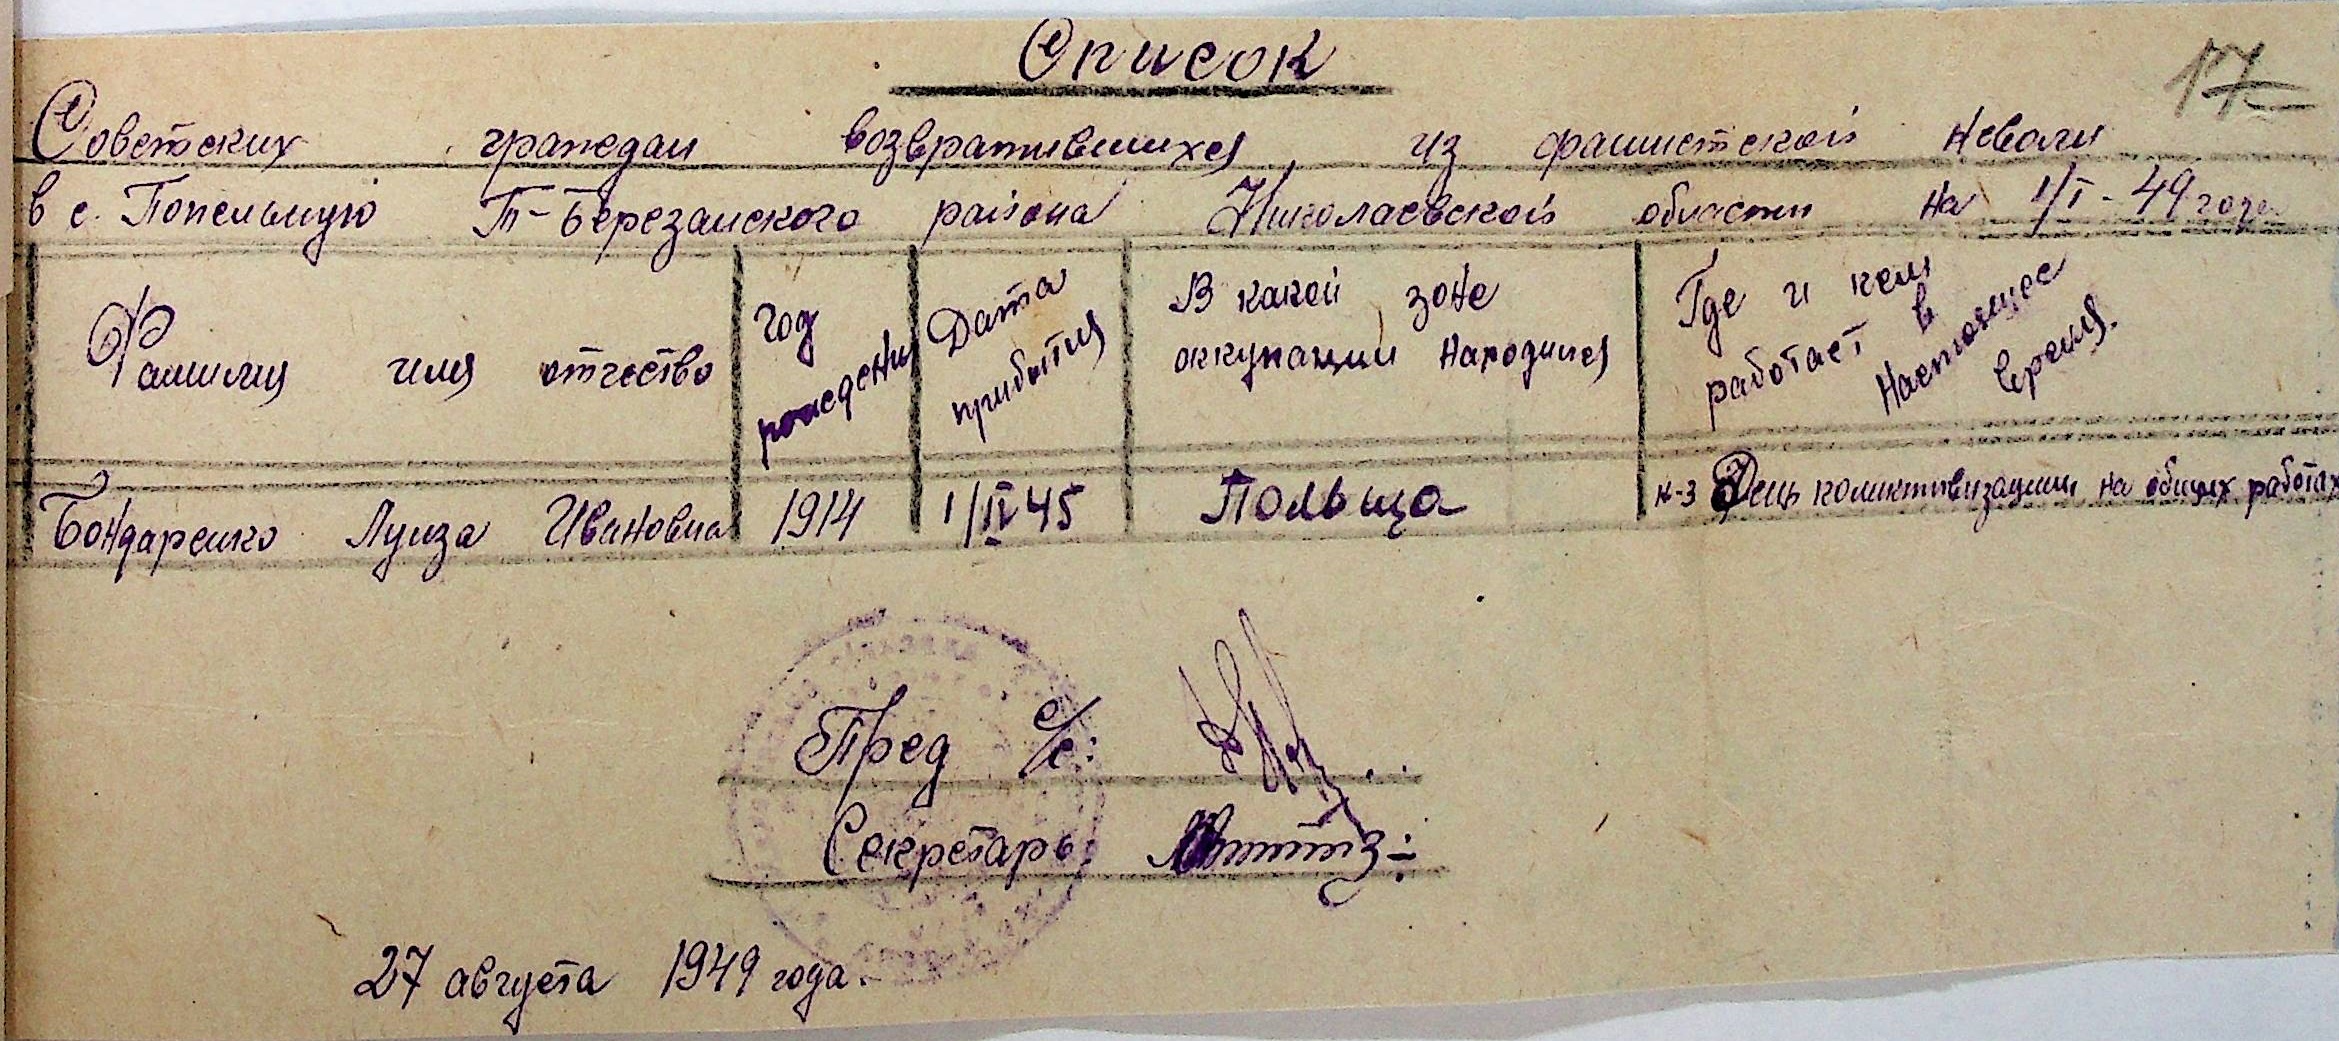 Список
17
Советских граждан возвратившихся из фашистской неволи
в с. Попельную Т-Березанского района Николаевской области на 1/I-49 года
Фамилия имя отчество
Год рождения
Дата прибытия
В какой зоне оккупации находился
Где и кем работает в настоящее время.
Бондаренко Луиза Ивановна 1914 1/IV 45 Польща к-з День коликтивизации на общих работах
Пред с/с:
Секретарь:
27 августа 1949 года.